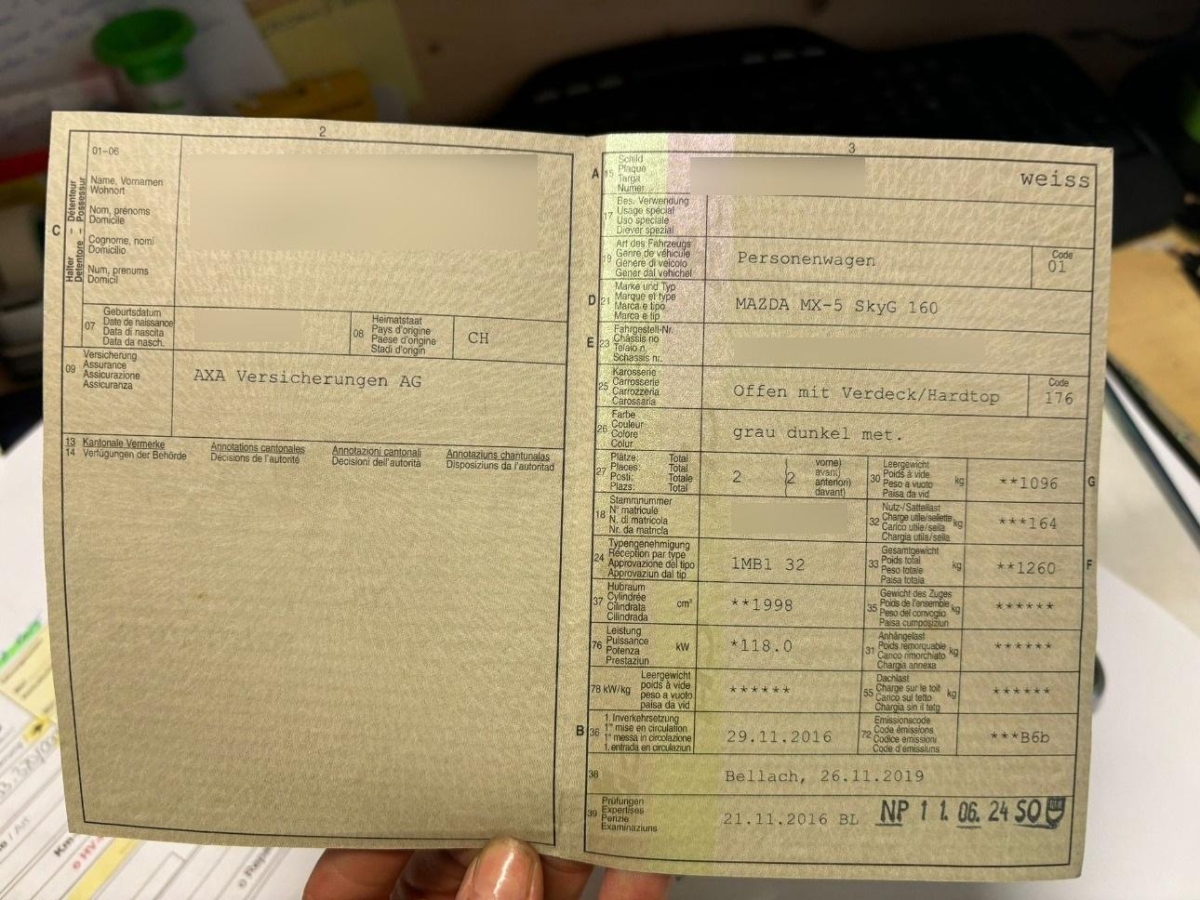 2
01-06
Halter - Détenteur
Detentore - Possessur
C
Name, Vornamen
Wohnort
Nom, prénoms
Domicile
Cognome, nomi
Domicilio
Num, prenums
Domicil
07
Geburtsdatum
Date de naissance
Data di nascita
Data da nasch.
08
Heimatstaat
Pays d'origine
Paese d'origine
Stadi d'origin
CH
09
Versicherung
Assurance
Assicurazione
Assicuranza
AXA Versicherungen AG
13 Kantonale Vermerke Annotations cantonales Annotazioni cantonali Annotaziuns chantunalas
14 Verfügungen der Behörde Décisions de l'autorité Decisioni dell'autorità Disposiziuns da l'autoritad
3
A
15
Schild
Plaque
Targa
Numer
weiss
17
Bes. Verwendung
Usage spécial
Uso speciale
Diever spezial
19
Art des Fahrzeugs
Genre de véhicule
Genere di veicolo
Gener dal vehichel
Personenwagen
Code
01
D
21
Marke und Typ
Marque et type
Marca e tipo
Marca e tip
MAZDA MX-5 SkyG 160
E
23
Fahrgestell-Nr.
Châssis no
Telaio n.
Schassis nr.
25
Karosserie
Carrosserie
Carrozzeria
Carossaria
Offen mit Verdeck/Hardtop
Code
176
26
Farbe
Couleur
Colore
Colur
grau dunkel met.
27
Plätze: Total
Places: Total
Posti: Totale
Plazs: Total
2
(2
vorne)
avant)
anteriori)
davant)
30
Leergewicht
Poids à vide
Peso a vuoto
Paisa da vid
kg
**1096
G
18
Stammnummer
N° matricule
N. di matricola
Nr. da matricla
32
Nutz-/Sattellast
Charge utile/sellette
Carico utile/sella
Chargia utila/sella
kg
***164
24
Typengenehmigung
Réception par type
Approvazione del tipo
Approvaziun dal tip
1MB1 32
33
Gesamtgewicht
Poids total
Peso totale
Paisa totala
kg
**1260
F
37
Hubraum
Cylindrée
Cilindrata
Cilindrada
cm³
**1998
35
Gewicht des Zuges
Poids de l'ensemble
Peso del convoglio
Paisa cumposiziun
kg
******
76
Leistung
Puissance
Potenza
Prestaziun
kW
*118.0
31
Anhängelast
Poids remorquable
Carico rimorchiato
Chargia annexa
kg
******
78 kW/kg
Leergewicht
poids à vide
peso a vuoto
paisa da vid
******
55
Dachlast
Charge sur le toit
Carico sul tetto
Chargia sin il tetg
kg
******
B
36
1. Inverkehrsetzung
1re mise en circulation
1a messa in circolazione
1. entrada en circulaziun
29.11.2016
72
Emissionscode
Code émissions
Codice emissioni
Code d'emissiuns
***B6b
38
Bellach, 26.11.2019
39
Prüfungen
Expertises
Perizie
Examinaziuns
21.11.2016 BL
NP 1 1. 06. 24 SO